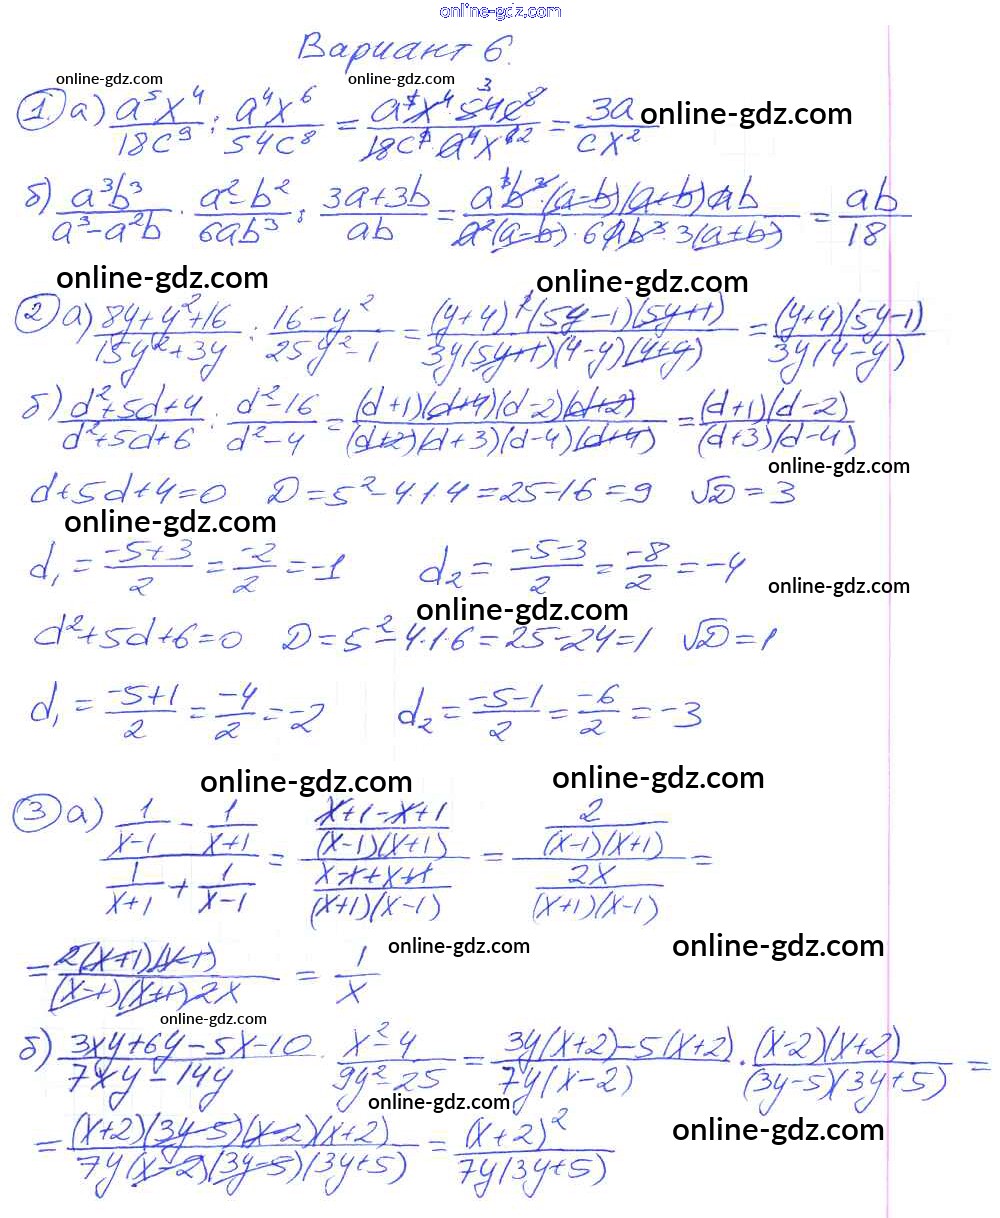 online-gdz.com
Вариант 6.
online-gdz.com online-gdz.com
1. а) a⁵x⁴/18c⁹ : a⁴x⁶/54c⁸ = a⁵x⁴·54c⁸/18c⁹·a⁴x⁶ = 3a/cx² online-gdz.com
б) a³b³/a³-a²b · a²-b²/6ab³ : 3a+3b/ab = a³b³·(a-b)(a+b)ab/a²(a-b)·6ab³·3(a+b) = ab/18
online-gdz.com online-gdz.com
2 а) 8y+y²+16/15y²+3y : 16-y²/25y²-1 = (y+4)²(5y-1)(5y+1)/3y(5y+1)(4-y)(4+y) = (y+4)(5y-1)/3y(4-y)
б) d²+5d+4/d²+5d+6 : d²-16/d²-4 = (d+1)(d+4)(d-2)(d+2)/(d+2)(d+3)(d-4)(d+4) = (d+1)(d-2)/(d+3)(d-4)
online-gdz.com
d+5d+4=0 D=5²-4·1·4=25-16=9 √D=3
online-gdz.com
d₁ = -5+3/2 = -2/2 = -1 d₂ = -5-3/2 = -8/2 = -4
online-gdz.com
online-gdz.com
d²+5d+6=0 D=5²-4·1·6=25-24=1 √D=1
d₁ = -5+1/2 = -4/2 = -2 d₂ = -5-1/2 = -6/2 = -3
online-gdz.com online-gdz.com
3 а) 1/x-1 - 1/x+1 / 1/x+1 + 1/x-1 = x+1-x+1/(x-1)(x+1) / x-1+x+1/(x+1)(x-1) = 2/(x-1)(x+1) / 2x/(x+1)(x-1) =
online-gdz.com online-gdz.com
= 2(x+1)(x-1)/(x-1)(x+1)2x = 1/x
online-gdz.com
б) 3xy+6y-5x-10/7xy-14y · x²-4/9y²-25 = 3y(x+2)-5(x+2)/7y(x-2) · (x-2)(x+2)/(3y-5)(3y+5) =
online-gdz.com
= (x+2)(3y-5)(x-2)(x+2)/7y(x-2)(3y-5)(3y+5) = (x+2)²/7y(3y+5) online-gdz.com